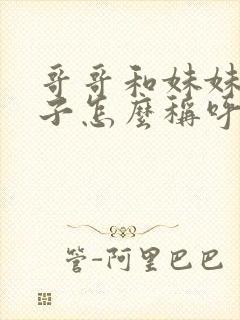 哥哥和妹妹
子怎麼稱呼
管-阿里巴巴